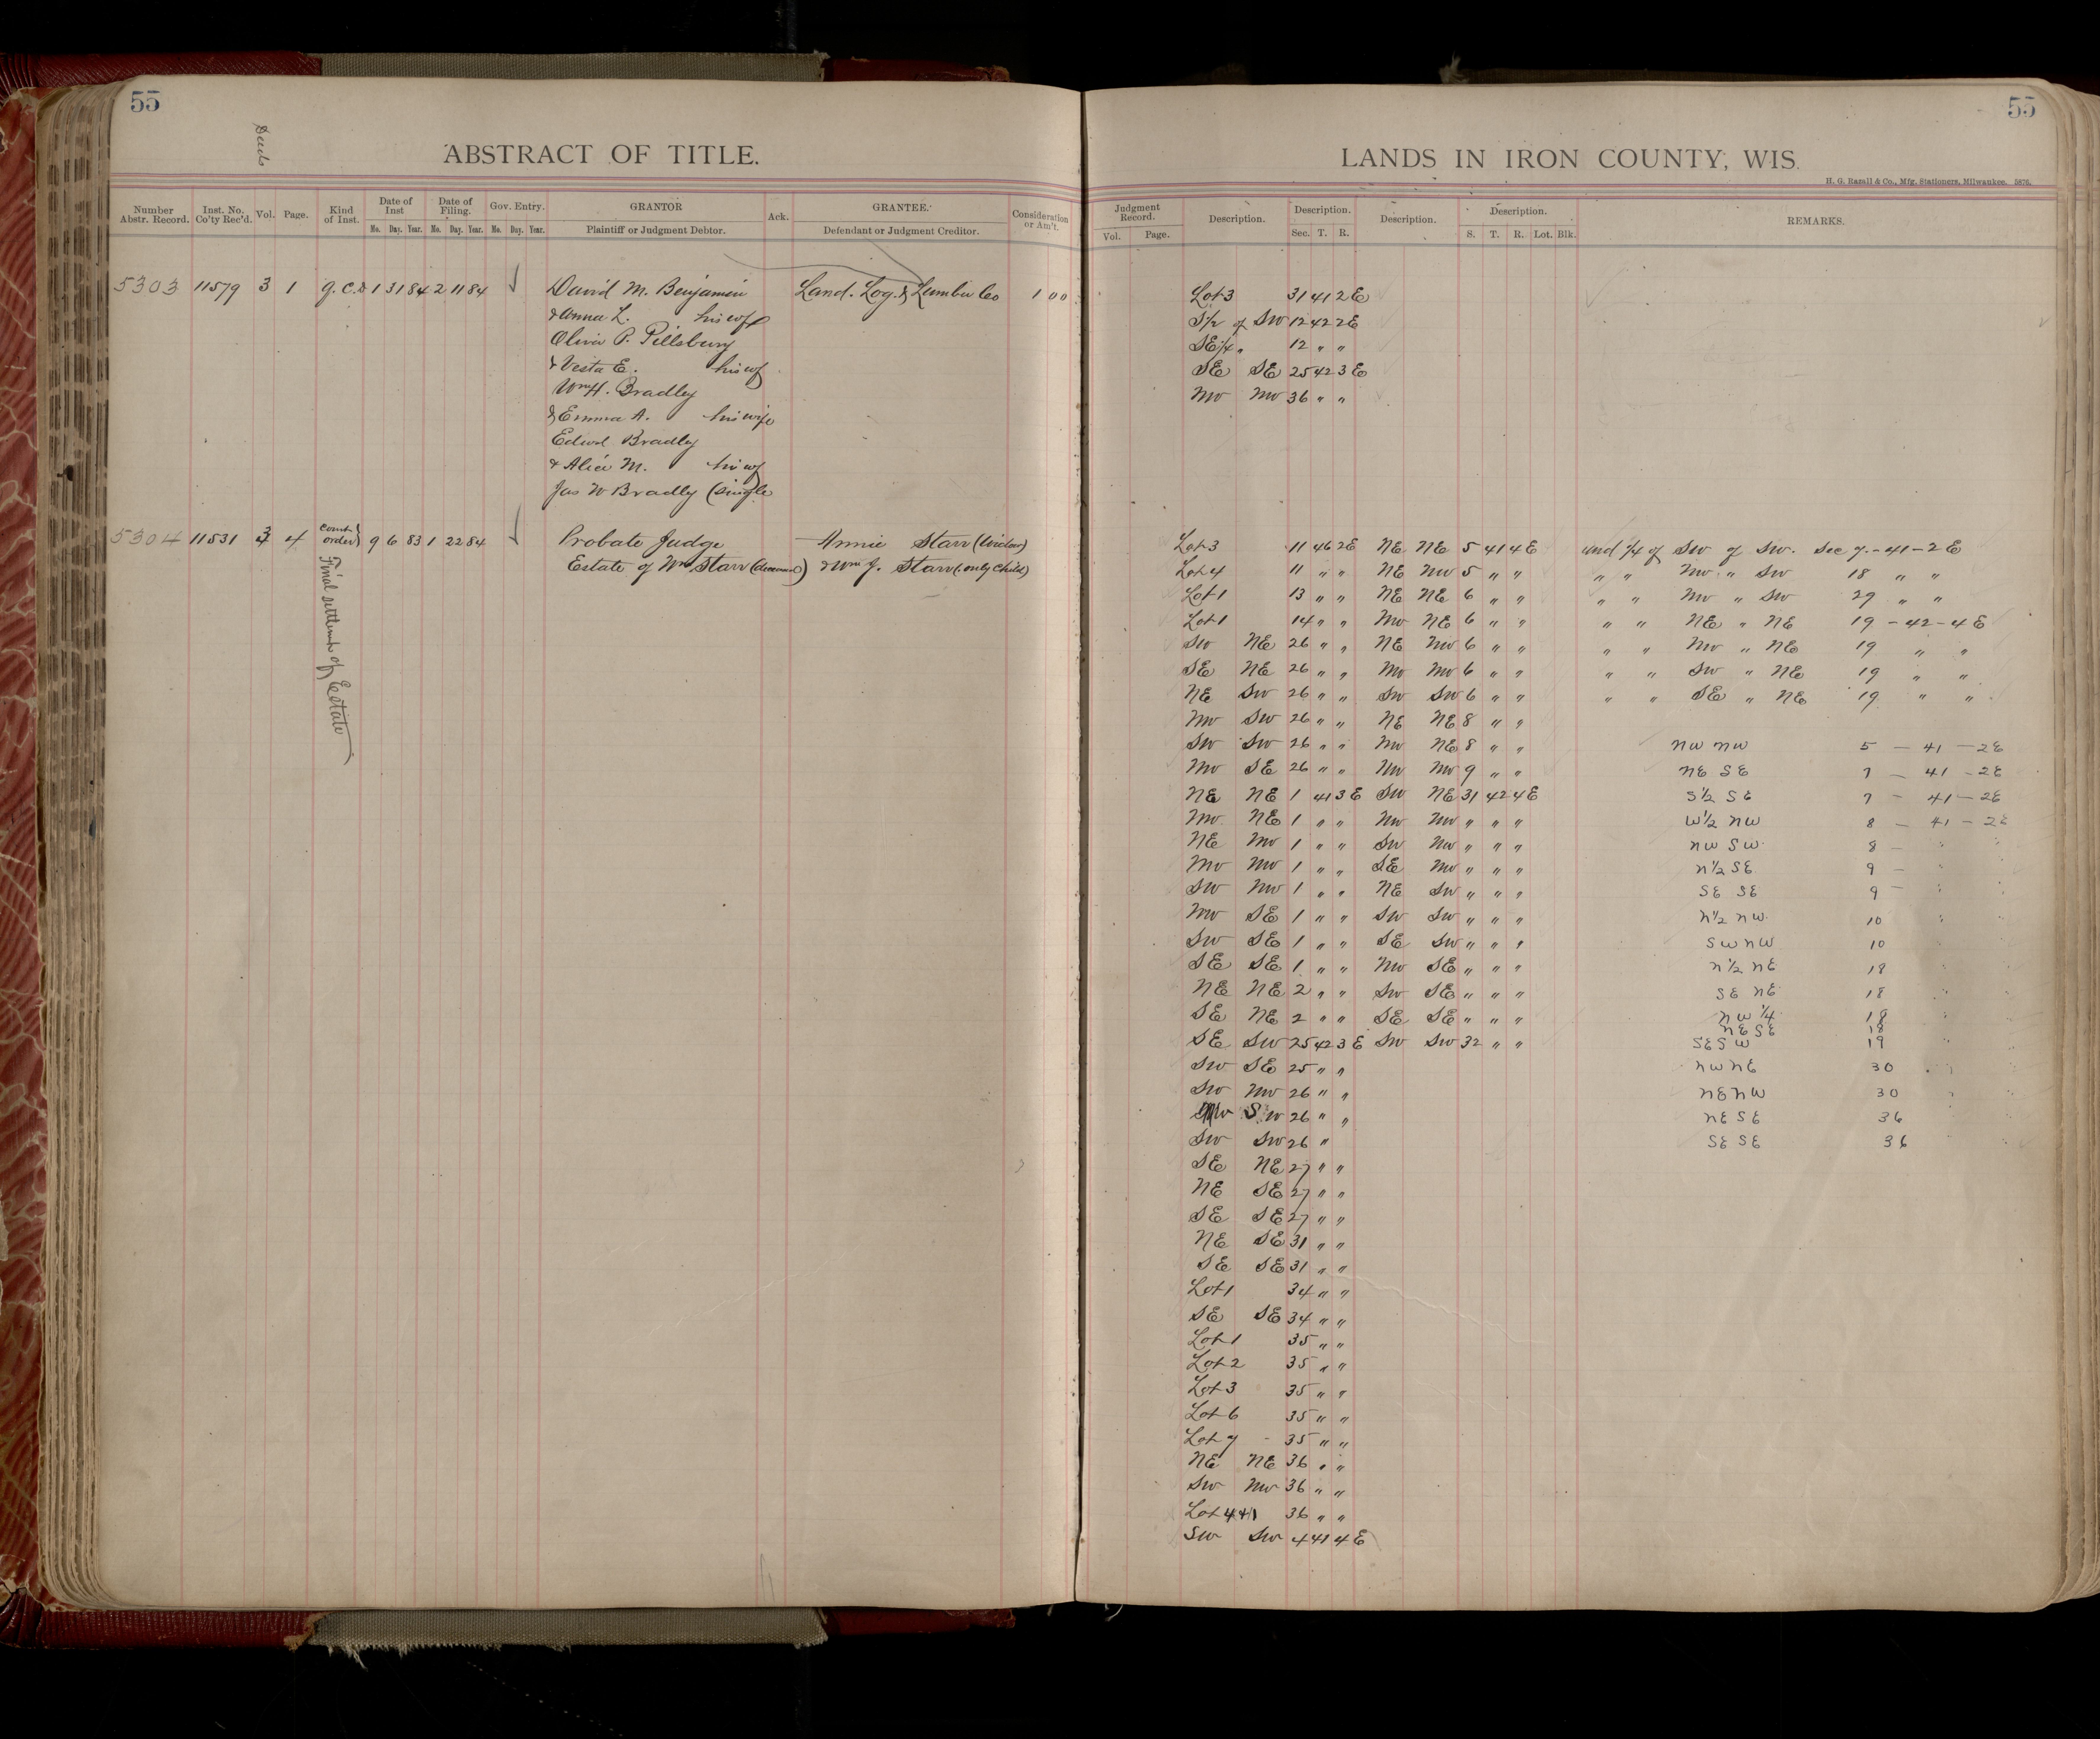 55
Deeds
ABSTRACT OF TITLE.
Number Abstr. Record. Inst. No. Co'ty Rec'd. Vol. Page. Kind of Inst. Date of Inst Mo. Day. Year. Date of Filing. Mo. Day. Year. Gov. Entry. Mo. Day. Year. GRANTOR Plaintiff or Judgment Debtor. Ack. GRANTEE. Defendant or Judgment Creditor. Consideration or Am't.
5303 11579 3 1 1 31 84 2 11 84 David M. Benjamin Land. Log. & Lumber Co 1 00
& Anna L. his wife
Oliver P. Pillsbury
& Vesta E. his wf
Wm H. Bradley
& Emma A. his wife
Edwd Bradley
& Alice M. his wf
Jas W Bradley (single
5304 11531 3 4 Court order 9 6 83 1 22 84 Probate Judge Annie Starr (Widow)
Estate of Wm Starr (deceased) & Wm J. Starr (only child)
Final settlemt of Estate
55
LANDS IN IRON COUNTY, WIS.
H. G. Razall & Co., Mfg. Stationers, Milwaukee. 5876.
Judgment Record. Vol. Page. Description. Description. Sec. T. R. Description. Description. S. T. R. Lot. Blk. REMARKS.
Lot 3 31 41 2 E
S1/2 of SW 12 42 2E
SE1/4 " 12 " "
SE SE 25 42 3 E
NW NW 36 " "
Lot 3 11 46 2E NE NE 5 41 4 E und 1/4 of SW of SW. Sec 7.-41-2 E
Lot 4 11 " " NE NW 5 " " " " NW " SW 18 " "
Lot 1 13 " " NE NE 6 " " " " NW " SW 29 " "
Lot 1 14 " " NW NE 6 " " " " NE " NE 19 -42-4 E
SW NE 26 " " NE NW 6 " " " " NW " NE 19 " "
SE NE 26 " " NW NW 6 " " " " SW " NE 19 " "
NE SW 26 " " SW SW 6 " " " " SE " NE 19 " "
NW SW 26 " " NE NE 8 " "
SW SW 26 " " NW NE 8 " " NW NW 5 - 41 - 2E
NW SE 26 " " NW NW 9 " " NE SE 7 - 41 - 2E
NE NE 1 41 3 E SW NE 31 42 4 E S1/2 SE 7 - 41 - 2E
NW NE 1 " " NW NW " " " W1/2 NW 8 - 41 - 2E
NE NW 1 " " SW NW " " " NW SW 8 - "
NW NW 1 " " SE NW " " " N1/2 SE 9 - "
SW NW 1 " " NE SW " " " SE SE 9 - "
NW SE 1 " " SW SW " " " N1/2 NW 10 "
SW SE 1 " " SE SW " " " SW NW 10
SE SE 1 " " NW SE " " " N1/2 NE 18
NE NE 2 " " SW SE " " " SE NE 18
SE NE 2 " " SE SE " " " NW 1/4 18
NE SE 18
SE SW 25 42 3 E SW SW 32 " " SE SW 19
SW SE 25 " " NW NE 30
SW NW 26 " " NE NW 30
NW SW 26 " " NE SE 36
SW SW 26 " SE SE 36
SE NE 27 " "
NE SE 27 " "
SE SE 27 " "
NE SE 31 " "
SE SE 31 " "
Lot 1 34 " "
SE SE 34 " "
Lot 1 35 " "
Lot 2 35 " "
Lot 3 35 " "
Lot 6 35 " "
Lot 7 35 " "
NE NE 36 " "
SW NW 36 " "
Lot 4+1 36 " "
SW SW 4 41 4 E